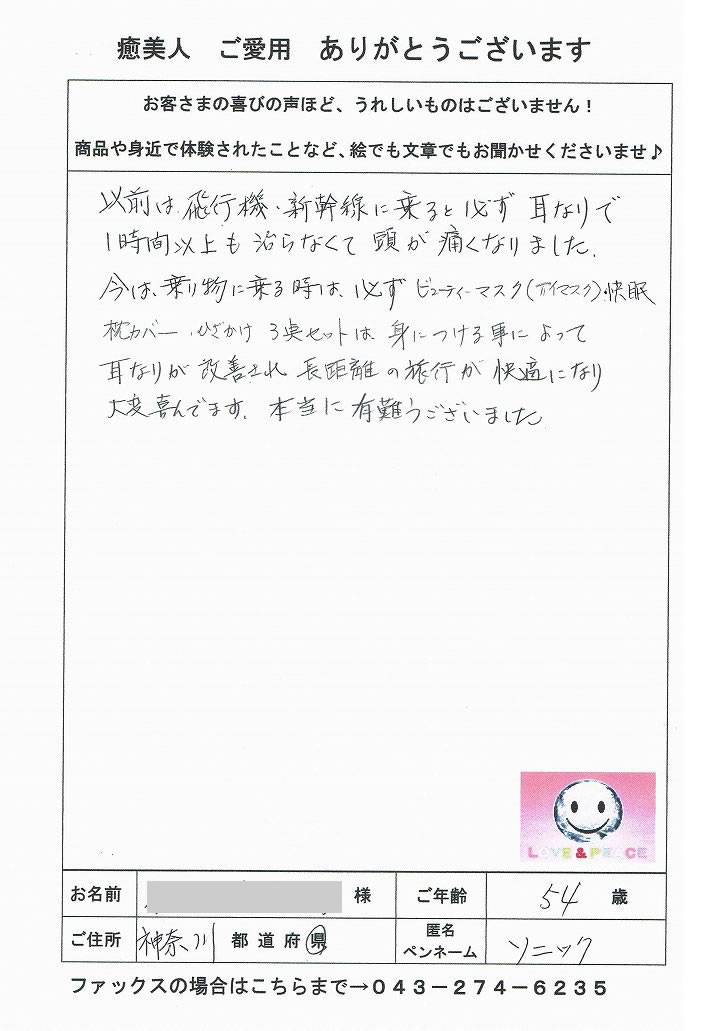 癒美人　ご愛用　ありがとうございます
お客さまの喜びの声ほど、うれしいものはございません！
商品や身近で体験されたことなど、絵でも文章でもお聞かせくださいませ♪
以前は飛行機・新幹線に乗ると必ず耳なりで
1時間以上も治らなくて頭が痛くなりました。
今は、乗り物に乗る時は、必ずビューティーマスク(アイマスク)・快眠
枕カバー・ひざかけ 3点セットは身につける事によって
耳なりが改善され長距離の旅行が快適になり
大変喜んでます。本当に有難うございました
LOVE & PEACE
お名前　様　ご年齢　54　歳
ご住所　神奈川　都道府県　匿名ペンネーム　ソニック
ファックスの場合はこちらまで→043－274－6235